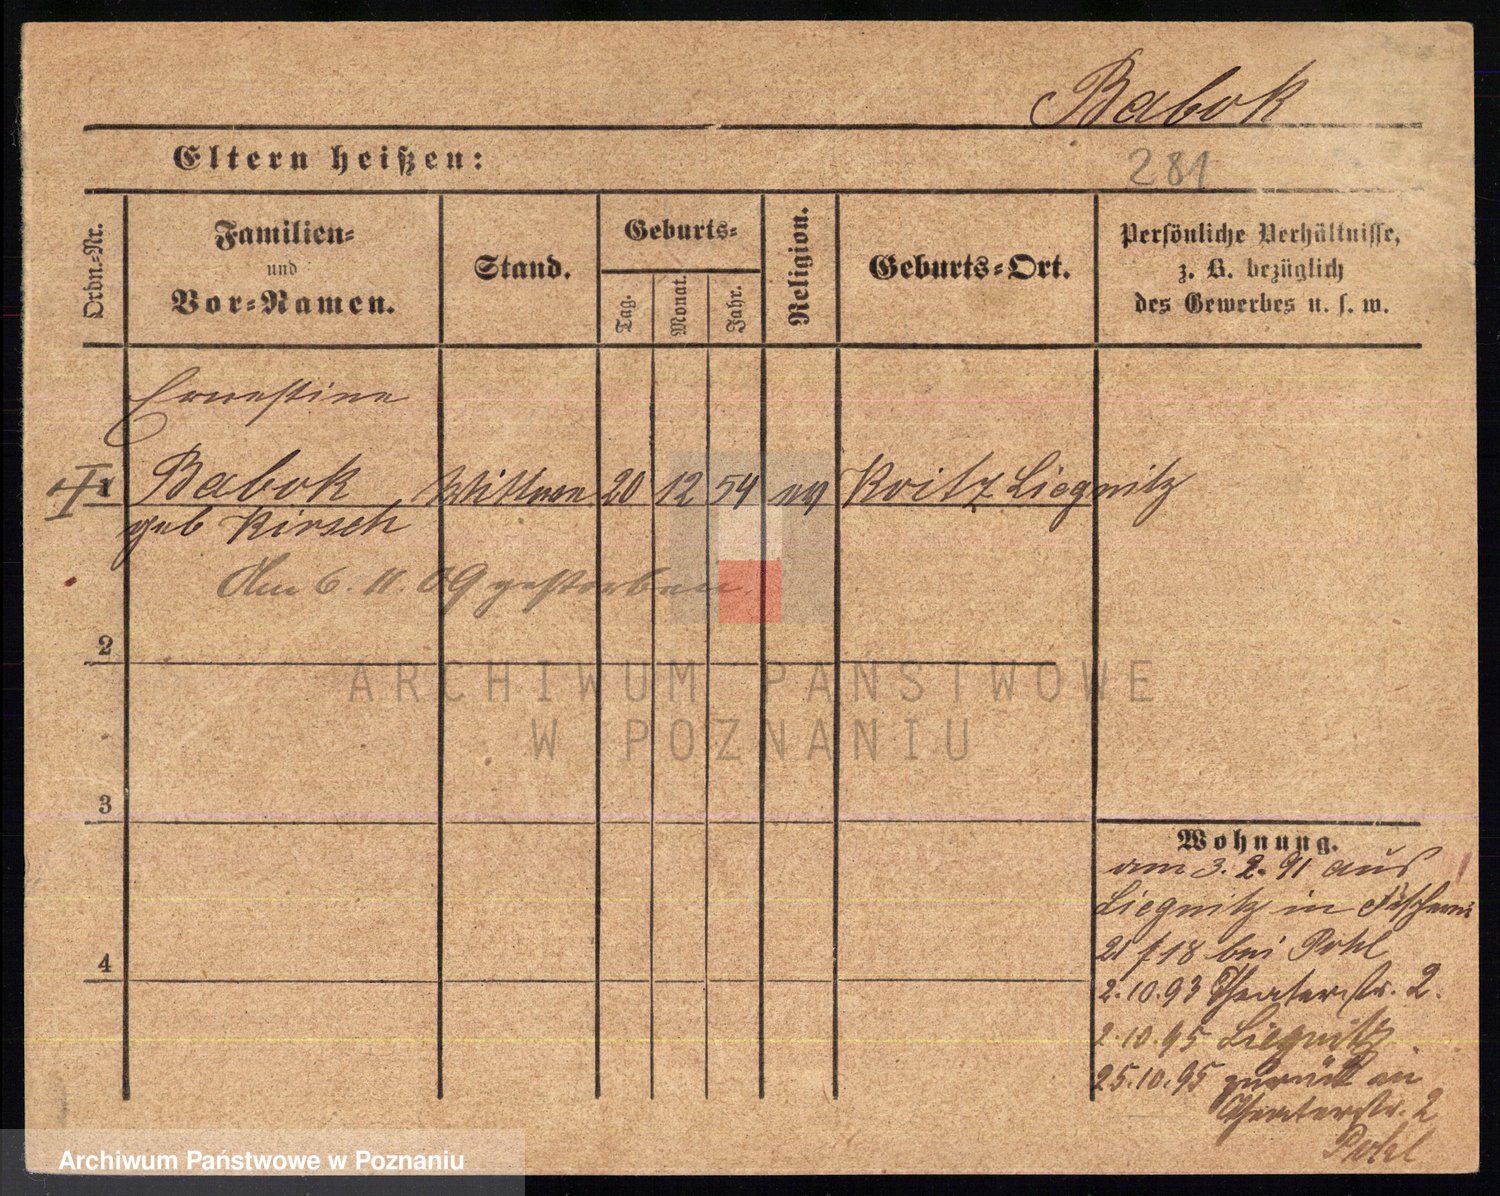 Babok
Eltern heißen:
281
Ordn.-Nr.
Familien-
und
Vor-Namen.
Stand.
Geburts-
Tag.
Monat.
Jahr.
Religion.
Geburts-Ort.
Persönliche Verhältnisse,
z. B. bezüglich
des Gewerbes u. s. w.
Ernestine
1 Babok Wittwe 20 12 54 ev Koitz Liegnitz
geb Kirsch
Am 6. 11. 09 gestorben.
2
3
4
Wohnung.
am 3. 2. 91 aus
Liegnitz in
21/18 bei Pohl
2.10.93 Theaterstr. 2.
2.10.95 Liegnitz
25.10.95 zurück in
Theaterstr. 2
Pohl
ARCHIWUM PAŃSTWOWE
W POZNANIU
Archiwum Państwowe w Poznaniu